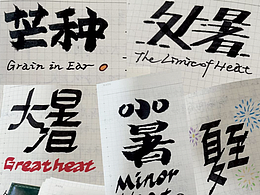 芒种
Grain in Ear
处暑
The Limit of Heat
大暑
Great heat
小暑
Minor
夏至